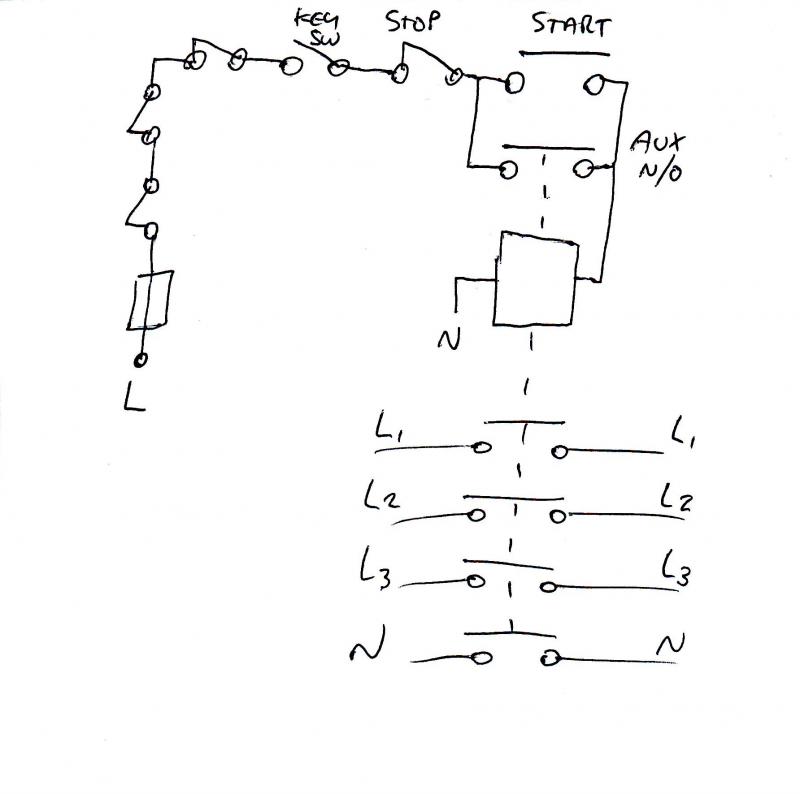 KEY
SW
STOP
START
AUX
N/O
N
L
L1 L1
L2 L2
L3 L3
N N